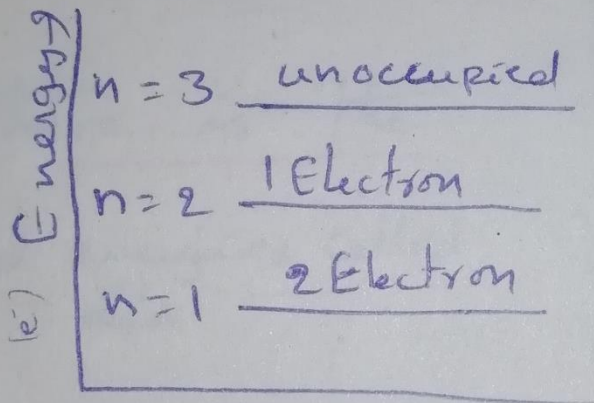 Energy→
n = 3 unoccupied
n = 2 1 Electron
n = 1 2 Electron
(e)